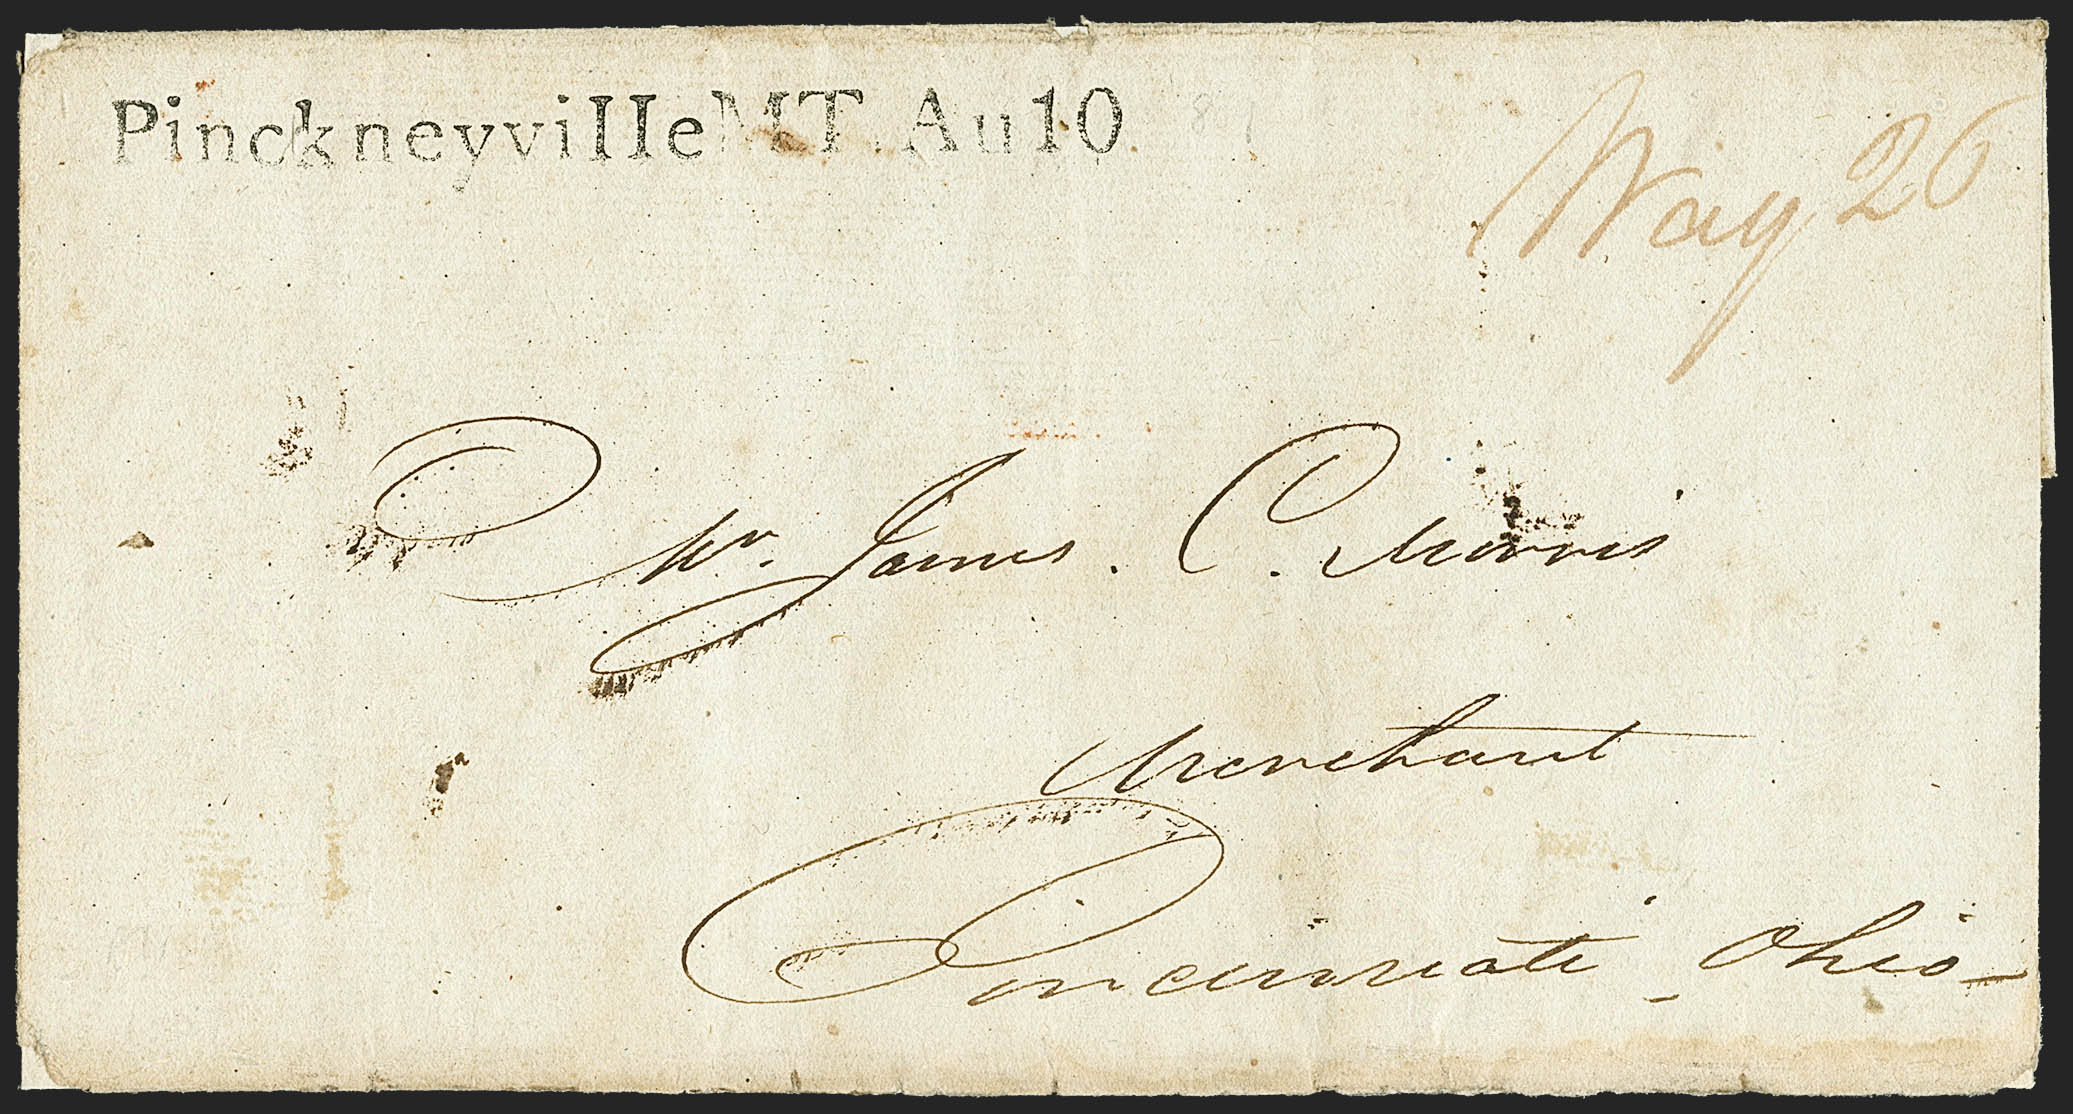 Pinckneyville MT. Au 10
Way 26
Mr. James. C. Morris
Merchant
Cincinnati - Ohio -